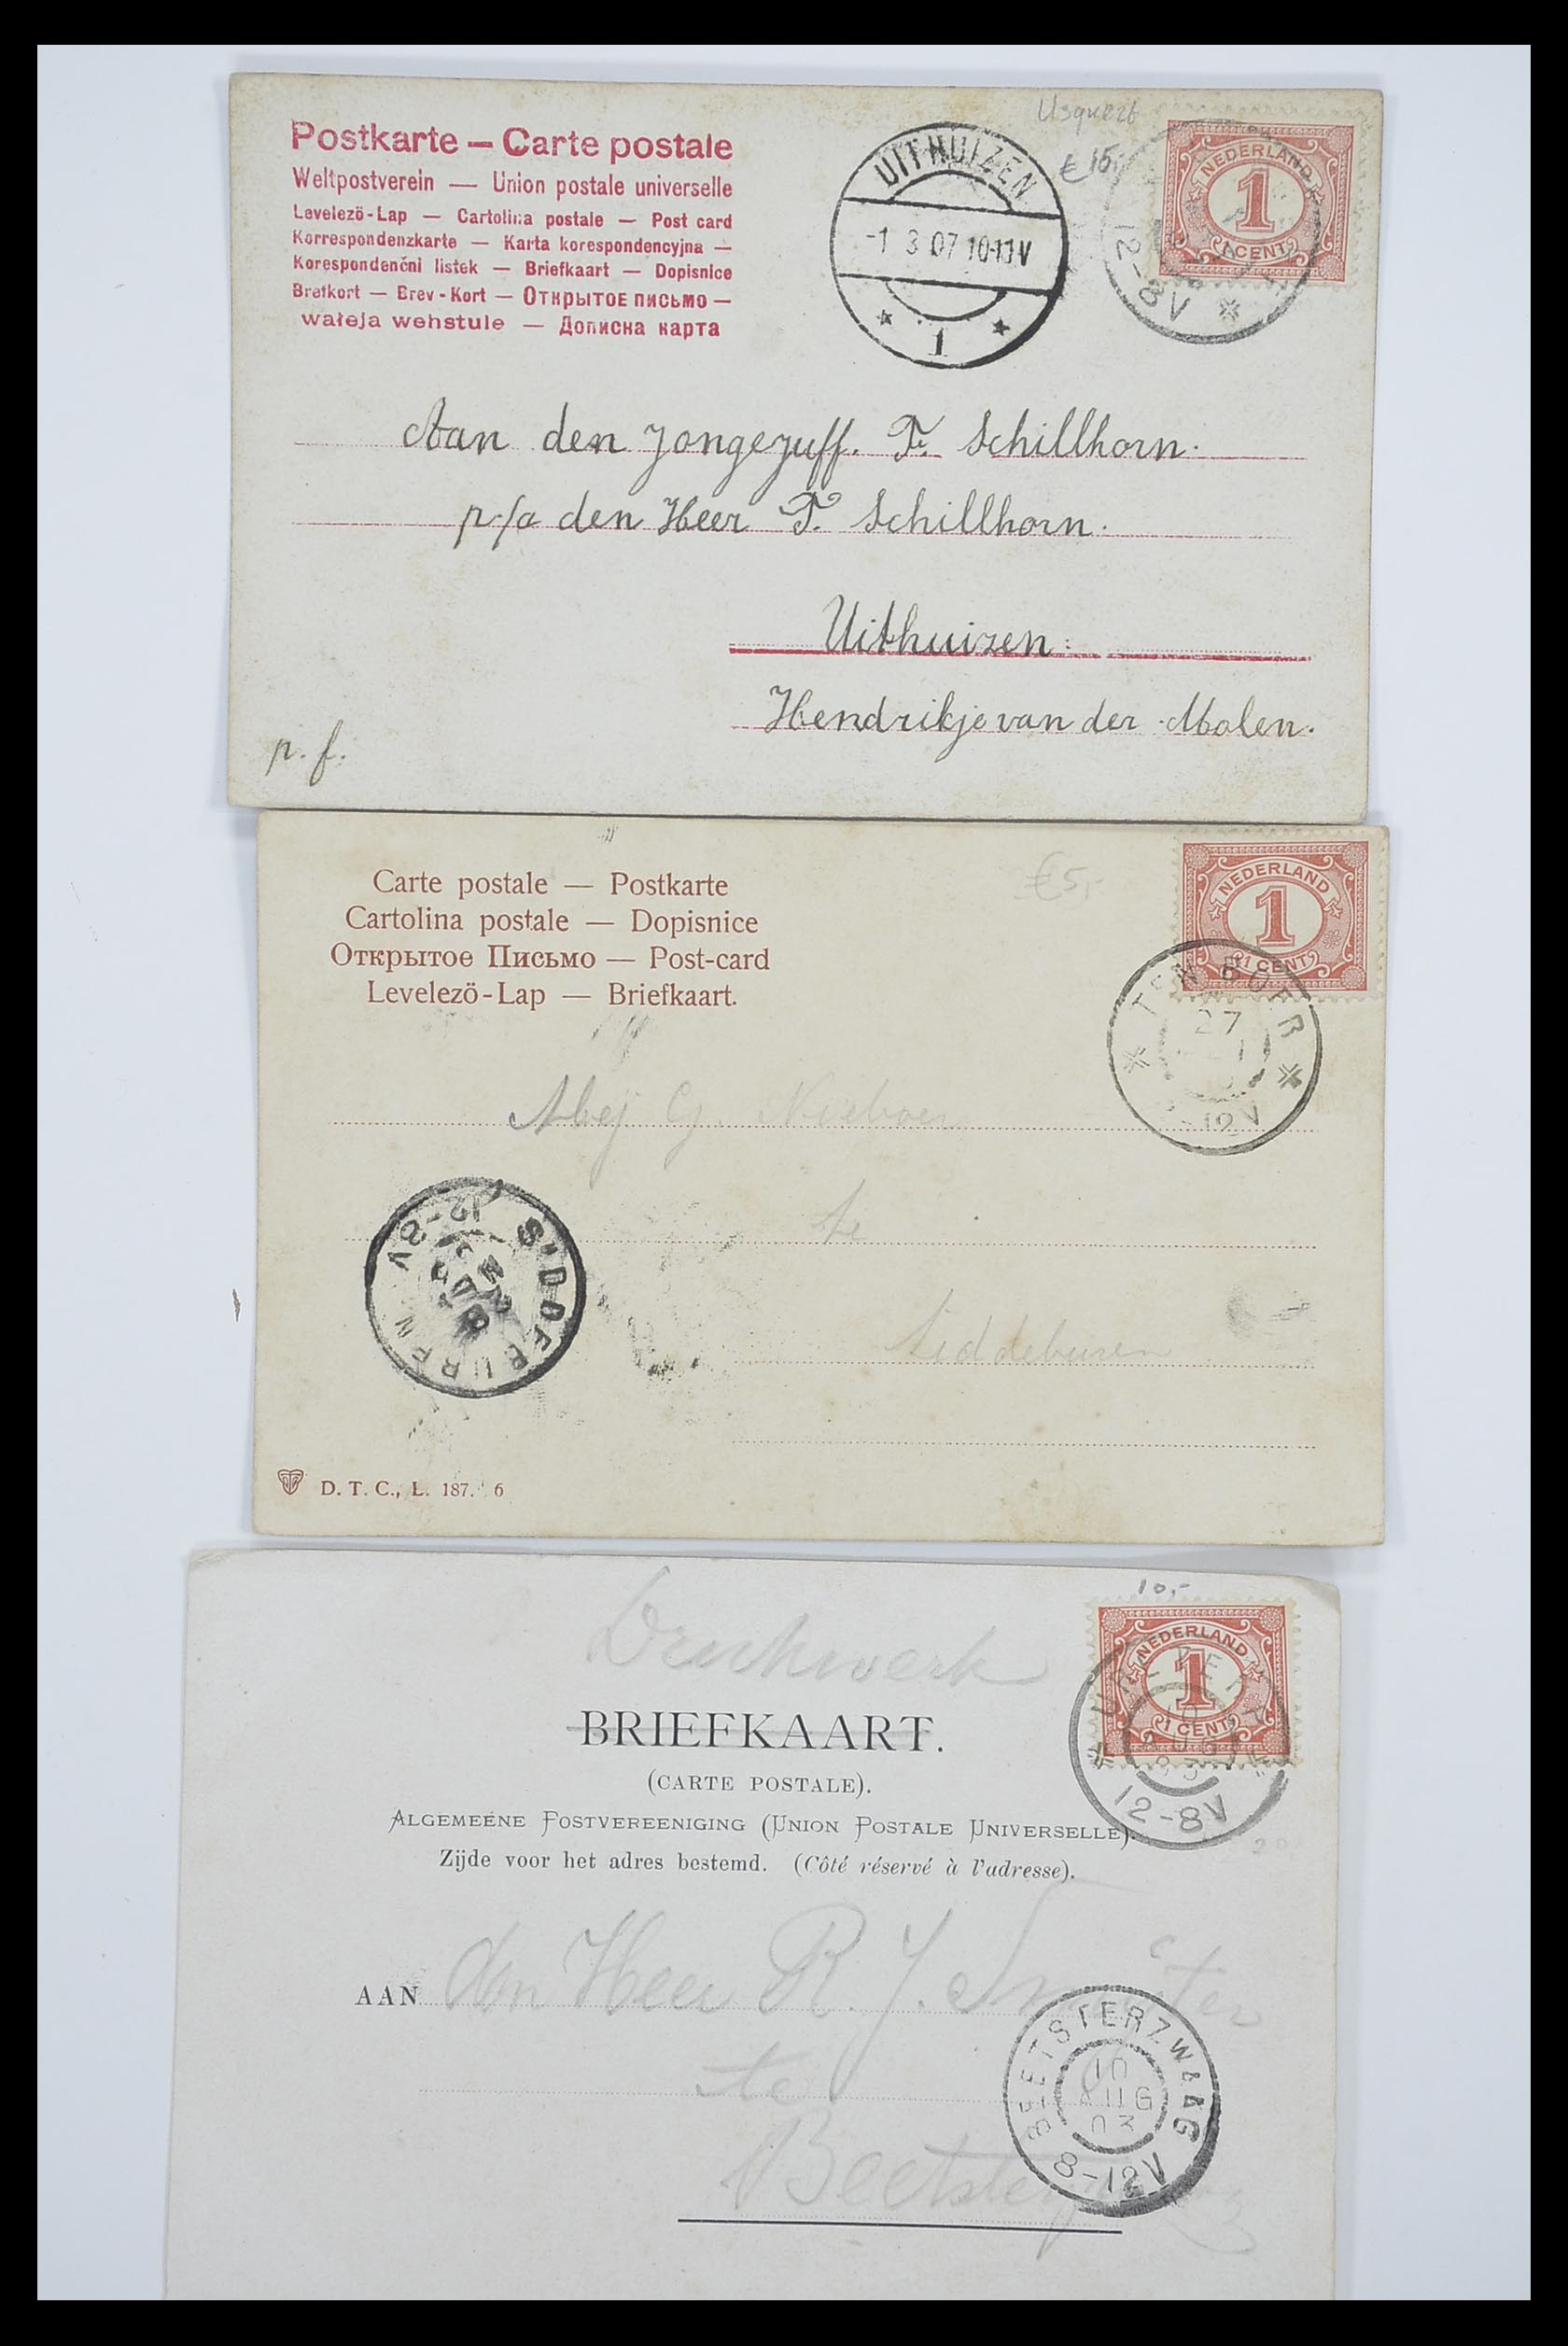 Usquert
€ 15,-
NEDERLAND
1
1 CENT
12-8V
Postkarte – Carte postale
Weltpostverein — Union postale universelle
Levelezö-Lap — Cartolina postale — Post card
Korrespondenzkarte — Karta korespondencyjna —
Korespondenčni listek — Briefkaart — Dopisnice
Brefkort — Brev-Kort — Открытое письмо —
wałeja wehstule — Дописна карта
UITHUIZEN
-1 3 07 10-11V
1
Aan den Jongejuff. F. Schillhorn.
p/a den Heer F. Schillhorn.
Uithuizen.
Hendrikje van der Molen.
p. f.
€5,-
NEDERLAND
1
1 CENT
Carte postale — Postkarte
Cartolina postale — Dopisnice
Открытое Письмо — Post-card
Levelezö-Lap — Briefkaart.
TEN BOER
27
-12V
Mej G.
te
Siddeburen
12-8V
D. T. C., L. 187. 6
10,-
NEDERLAND
1
1 CENT
12-8V
Drukwerk
BRIEFKAART.
(CARTE POSTALE).
ALGEMEENE POSTVEREENIGING (UNION POSTALE UNIVERSELLE).
Zijde voor het adres bestemd. (Côté réservé à l'adresse).
AAN den Heer R. J.
te
BEETSTERZWAAG
10
AUG
03
8-12V